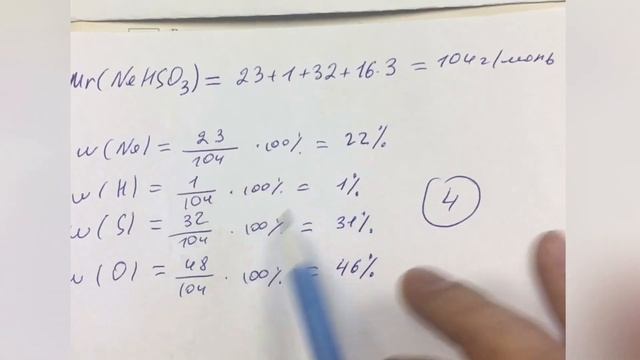 Mr(NaHSO₃) = 23+1+32+16·3 = 104 г/моль
w(Na) = 23/104 · 100% = 22%
w(H) = 1/104 · 100% = 1%
4
w(S) = 32/104 · 100% = 31%
w(O) = 48/104 · 100% = 46%